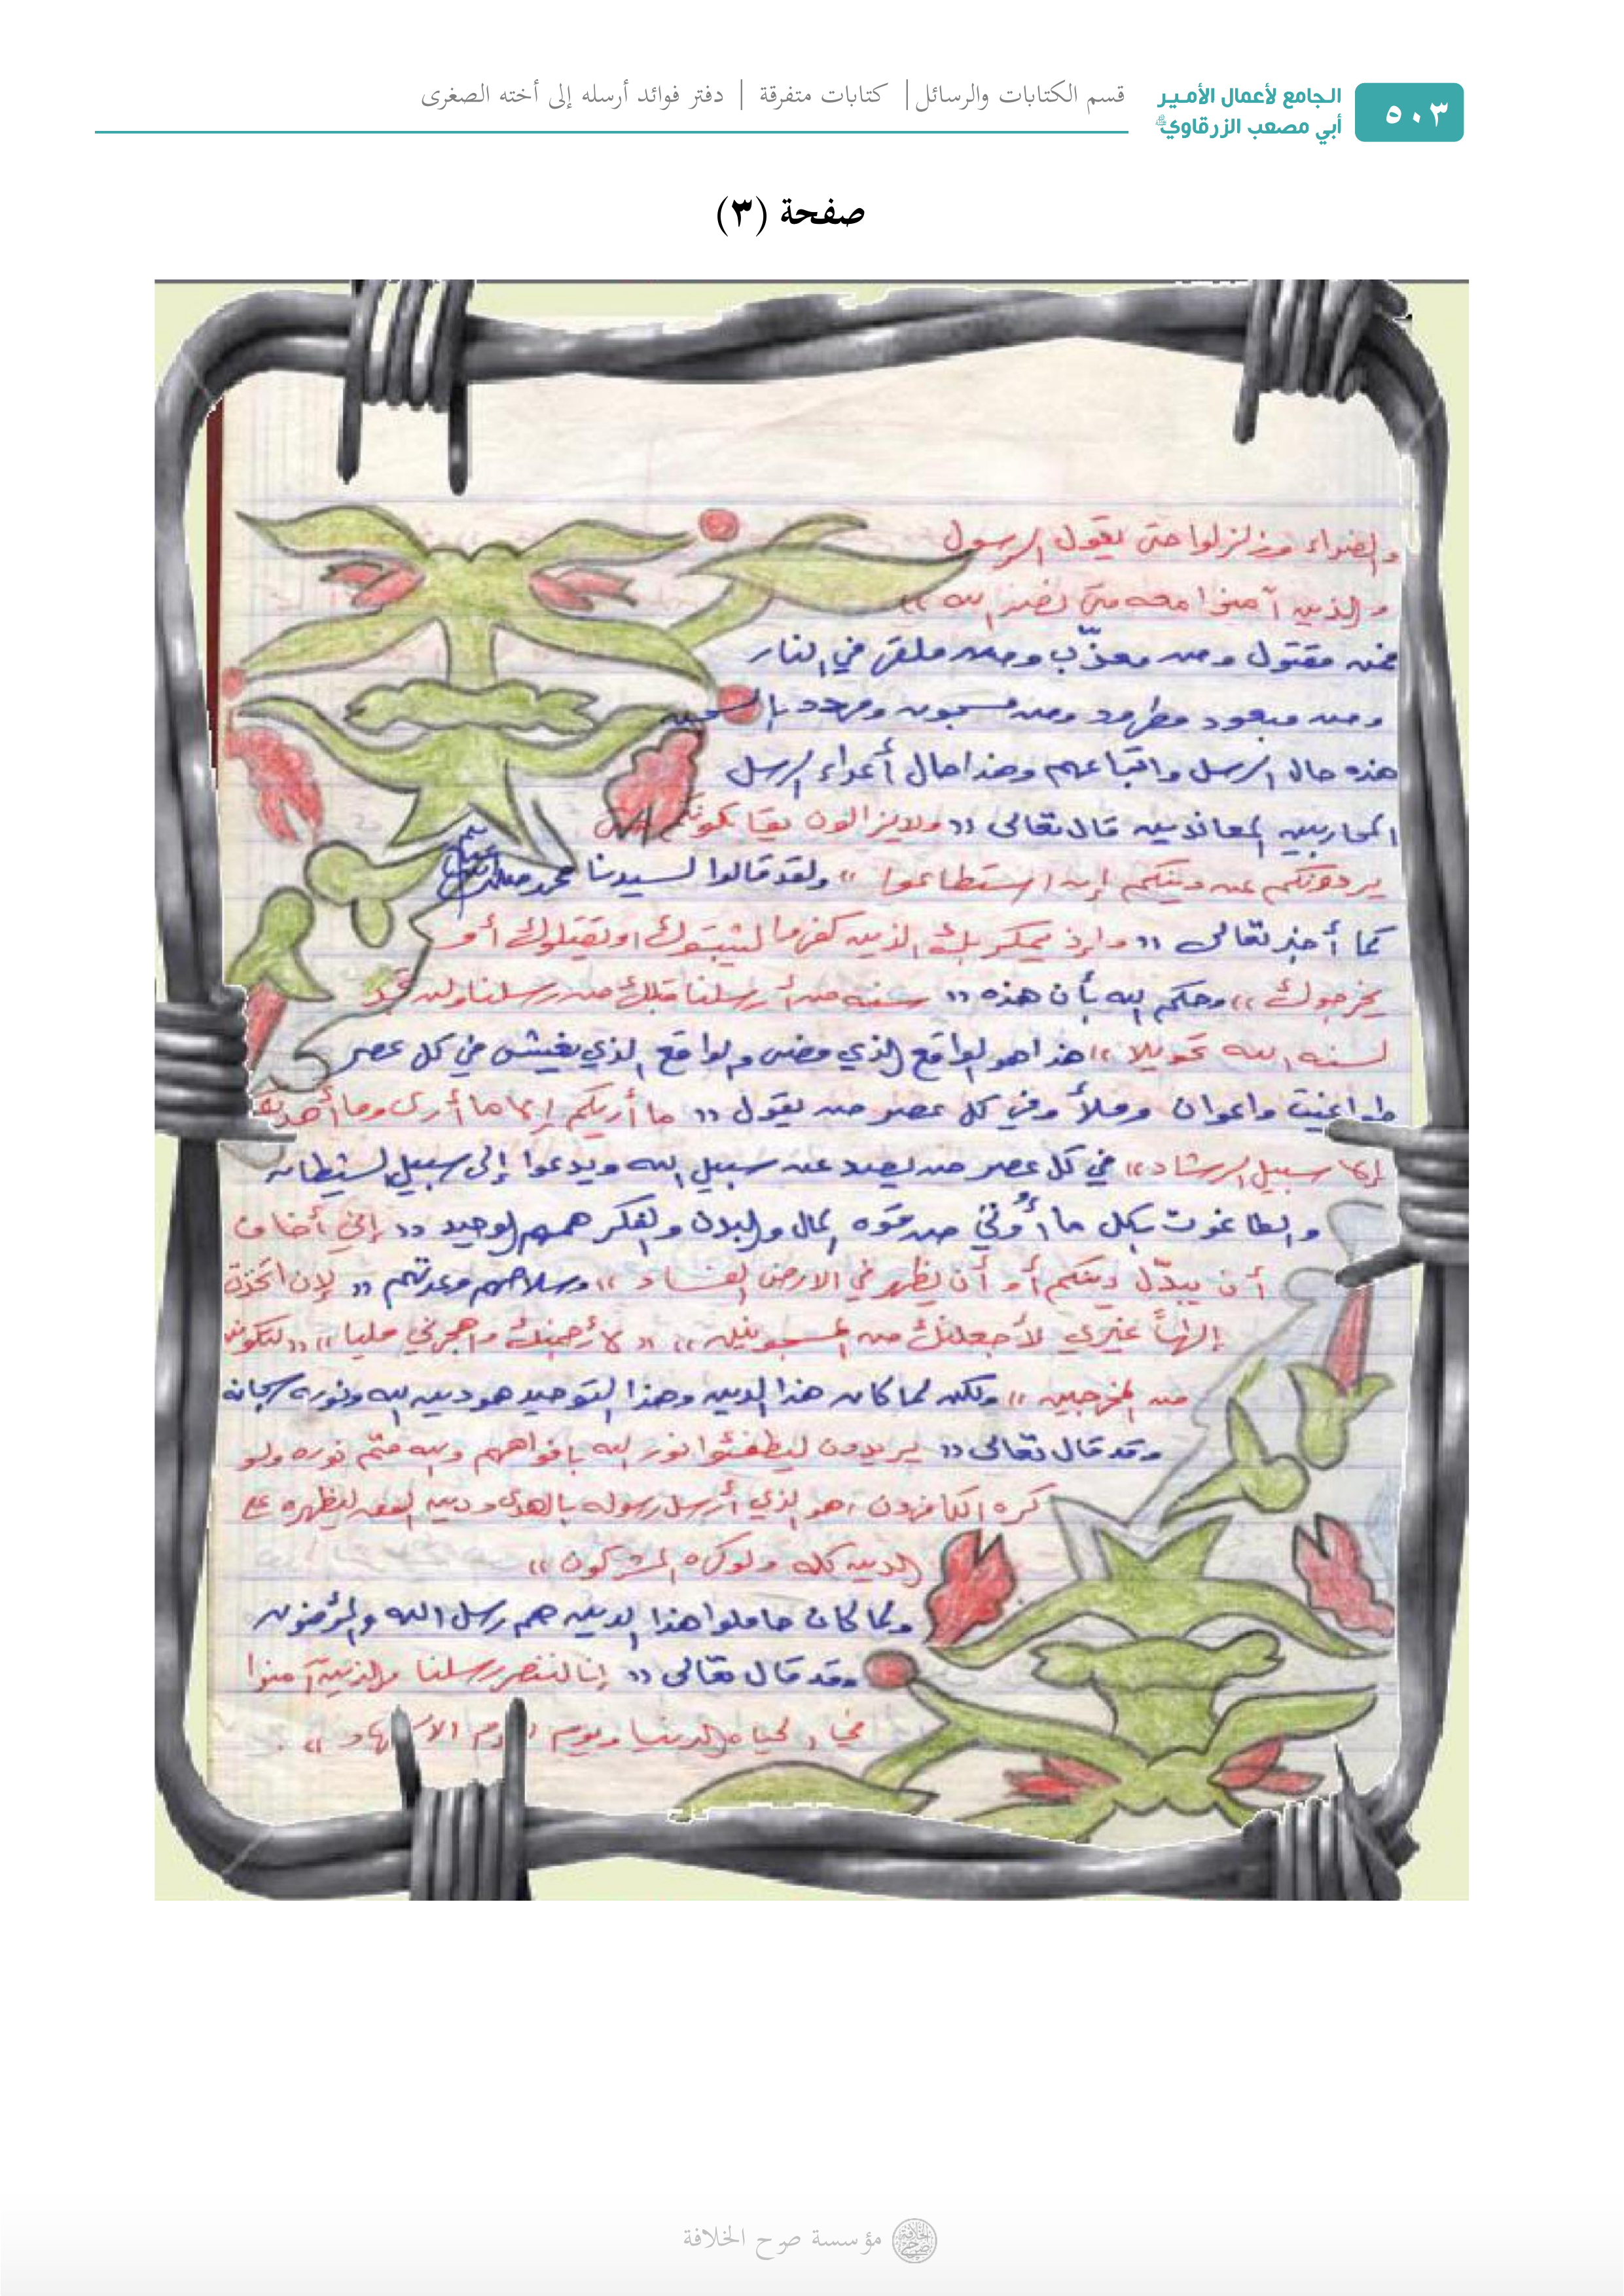 ٥٠٣
الجامع لأعمال الأمير
أبي مصعب الزرقاوي
قسم الكتابات والرسائل | كتابات متفرقة | دفتر فوائد أرسله إلى أخته الصغرى
صفحة (٣)
والضراء وزلزلوا حتى يقول الرسول
والذين آمنوا معه متى نصر الله ))
فمن مقتول ومن معذّب ومن ملقى في النار
ومن مبعود مطرود ومن مسجون ومهدد بالسجن
هذه حال الرسل واتباعهم وهذا حال أعداء الرسل
المحاربين المعاندين قال تعالى (( ولا يزالون يقاتلونكم حتى
يردونكم عن دينكم إن استطاعوا )) ولقد قالوا لسيدنا محمد
كما أخبر تعالى (( وإذ يمكر بك الذين كفروا ليثبتوك او يقتلوك أو
يخرجوك )) وحكم الله بأن هذه (( سنه من أرسلنا قبلك من رسلنا ولن تجد
لسنه الله تحويلا )) هذا هو الواقع الذي مضى والواقع الذي يعيش في كل عصر
طواغيت واعوان وملأ وفي كل عصر من يقول (( ما أريكم إلا ما أرى وما أهديكم
إلا سبيل الرشاد )) في كل عصر من يصد عن سبيل الله ويدعوا إلى سبيل الشيطان
والطاغوت بكل ما أُوتي من قوه المال والبدن والفكر همهم الوحيد (( إني أخاف
أن يبدّل دينكم أو أن يظهر في الارض الفساد )) وسلاحهم وعدتهم (( لإن اتخذت
إلهاً غيري لأجعلنك من المسجونين )) (( لأرجمنك واهجرني مليا )) (( لتكونن
من المخرجين )) ولكن لما كان هذا الدين وهذا التوحيد هو دين الله ونوره سبحانه
وقد قال تعالى (( يريدون ليطفئوا نور الله بافواههم والله متمّ نوره ولو
كره الكافرون ، هو الذي أرسل رسوله بالهدى ودين الحق ليظهره على
الدين كله ولو كره المشركون ))
ولما كان حاملوا هذا الدين هم رسل الله والمؤمنون
وقد قال تعالى (( إنا لننصر رسلنا والذين آمنوا
في الحياه الدنيا ويوم يقوم الاشهاد )) .
مؤسسة صرح الخلافة